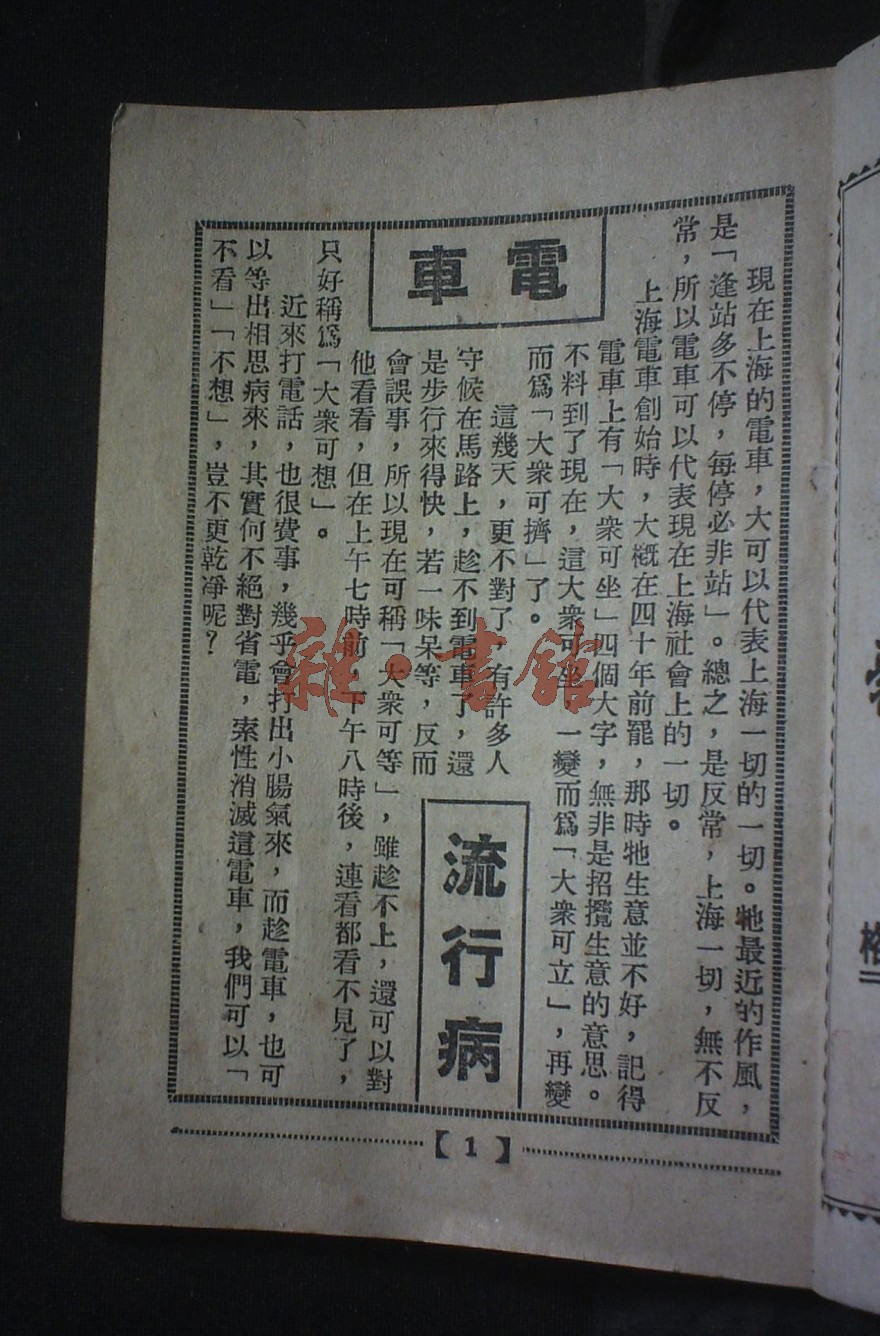 電車
流行病
現在上海的電車，大可以代表上海一切的一切。牠最近的作風，
是「逢站多不停，每停必非站」。總之，是反常，上海一切，無不反
常，所以電車可以代表現在上海社會上的一切。
上海電車創始時，大概在四十年前罷，那時牠生意並不好，記得
電車上有「大衆可坐」四個大字，無非是招攬生意的意思。
不料到了現在，這大衆可坐，一變而爲「大衆可立」，再變
而爲「大衆可擠」了。
這幾天，更不對了，有許多人
守候在馬路上，趁不到電車了，還
是步行來得快，若一味呆等，反而
會誤事，所以現在可稱「大衆可等」，雖趁不上，還可以對
他看看，但在上午七時前，下午八時後，連看都看不見了，
只好稱爲「大衆可想」。
近來打電話，也很費事，幾乎會打出小腸氣來，而趁電車，也可
以等出相思病來，其實何不絕對省電，索性消滅這電車，我們可以「
不看」「不想」，豈不更乾凈呢？
【1】
雜·書館